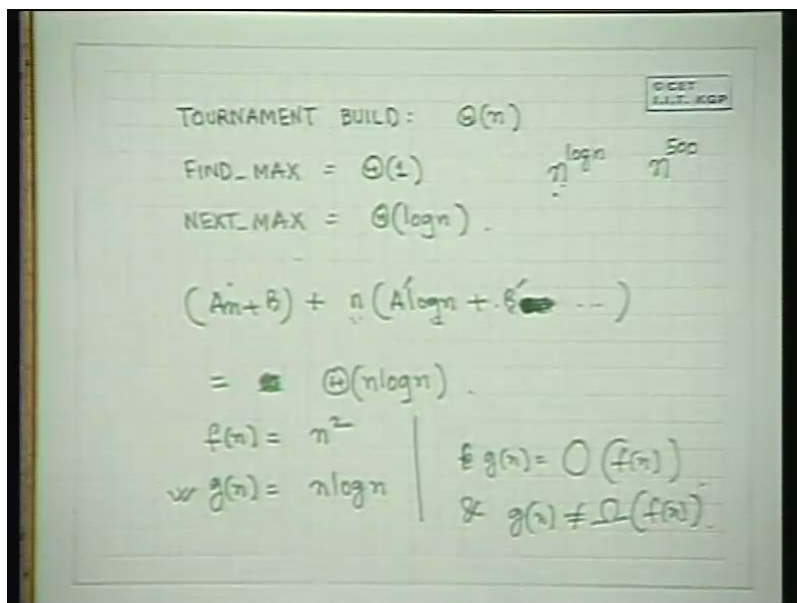 © CET
I.I.T. KGP
TOURNAMENT BUILD: Θ(n)
FIND_MAX = Θ(1) n^logn n^500
NEXT_MAX = Θ(logn).
(An+B) + n(A'logn + B' ...)
= Θ(nlogn).
f(n) = n^2
g(n) = nlogn
g(n) = O(f(n))
& g(n) ≠ Ω(f(n)).